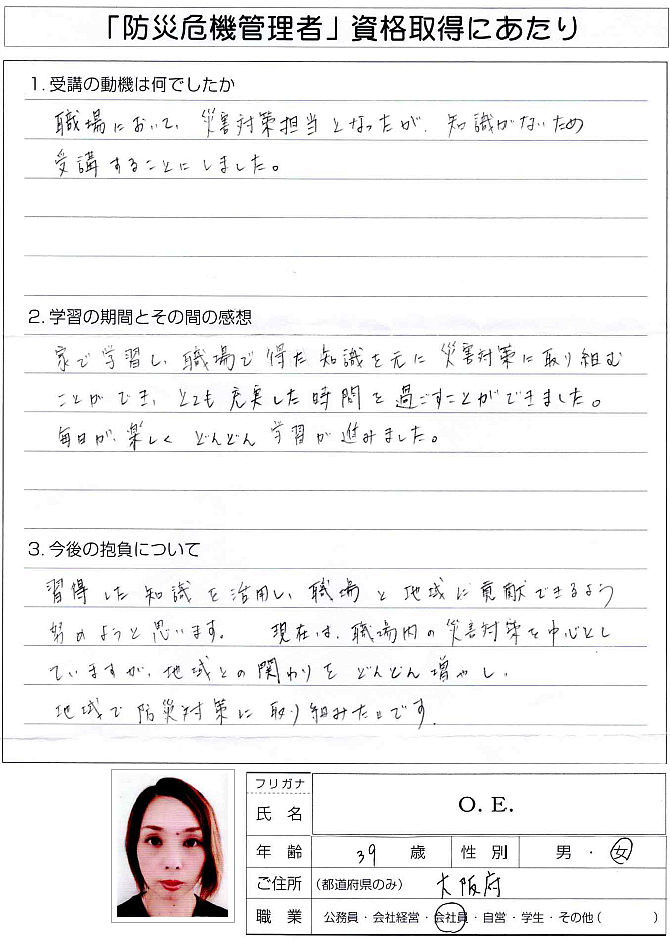 「防災危機管理者」資格取得にあたり
1. 受講の動機は何でしたか
職場において、災害対策担当となったが、知識がないため
受講することにしました。
2. 学習の期間とその間の感想
家で学習し、職場で得た知識を元に災害対策に取り組む
ことができ、とても充実した時間を過ごすことができました。
毎日が、楽しくどんどん学習が進みました。
3. 今後の抱負について
習得した知識を活用し、職場と地域に貢献できるよう
努めようと思います。 現在は、職場内の災害対策を中心とし
ていますが、地域との関わりをどんどん増やし、
地域で防災対策に取り組みたいです。
フリガナ
氏 名 O. E.
年 齢 39 歳 性 別 男 ・ 女
ご住所 (都道府県のみ) 大阪府
職 業 公務員・会社経営・会社員・自営・学生・その他( )